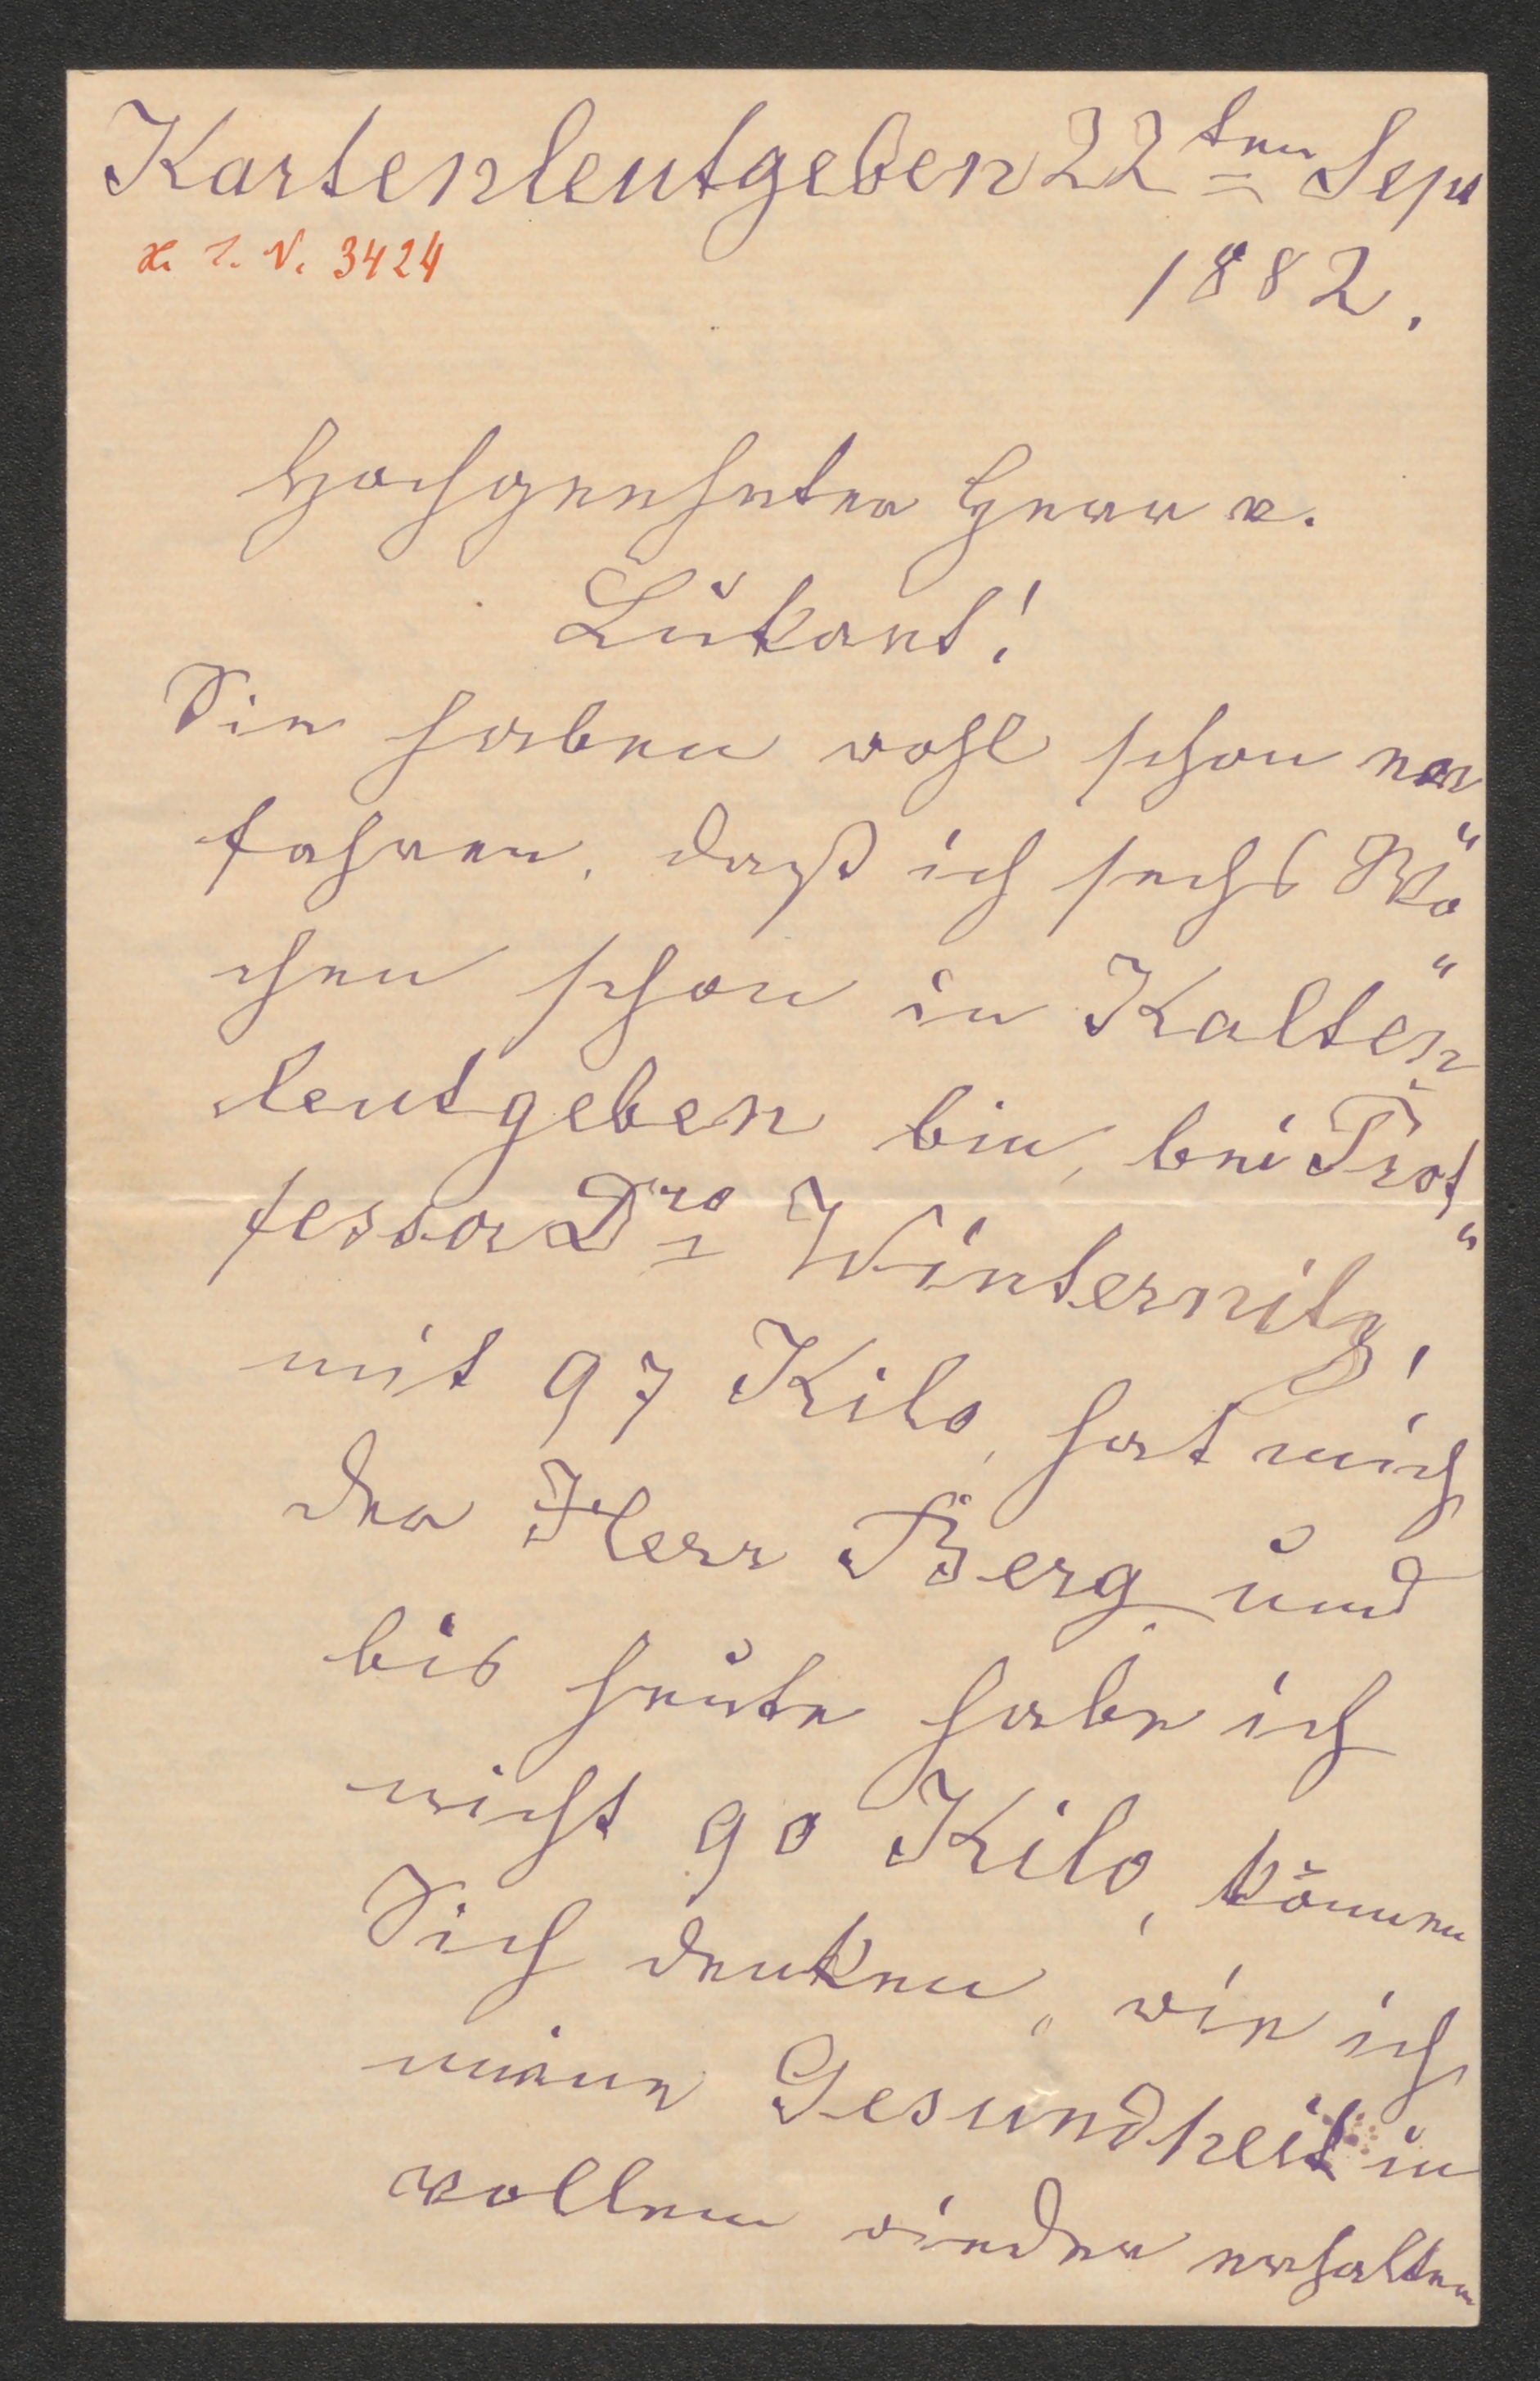 Kartenleutgeben 22ten Sep
H. I. N. 3424
1882.
Hochgeehrter Herr v.
Lukart!
Sie haben wohl schon er
fahren, daß ich sechs Wo"
chen schon in Kalten"
leutgeben bin, bei Prof"
fessor Dro Winternitz!
mit 97 Kilo, hat mich
der Herr Berg und
bis heute habe ich
nicht 90 Kilo, können
Sich denken, wie ich
meine Gesundheit in
vollem wieder erhalten